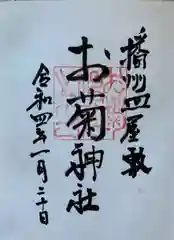 播州皿屋敷
お菊神社
令和四年一月二十日